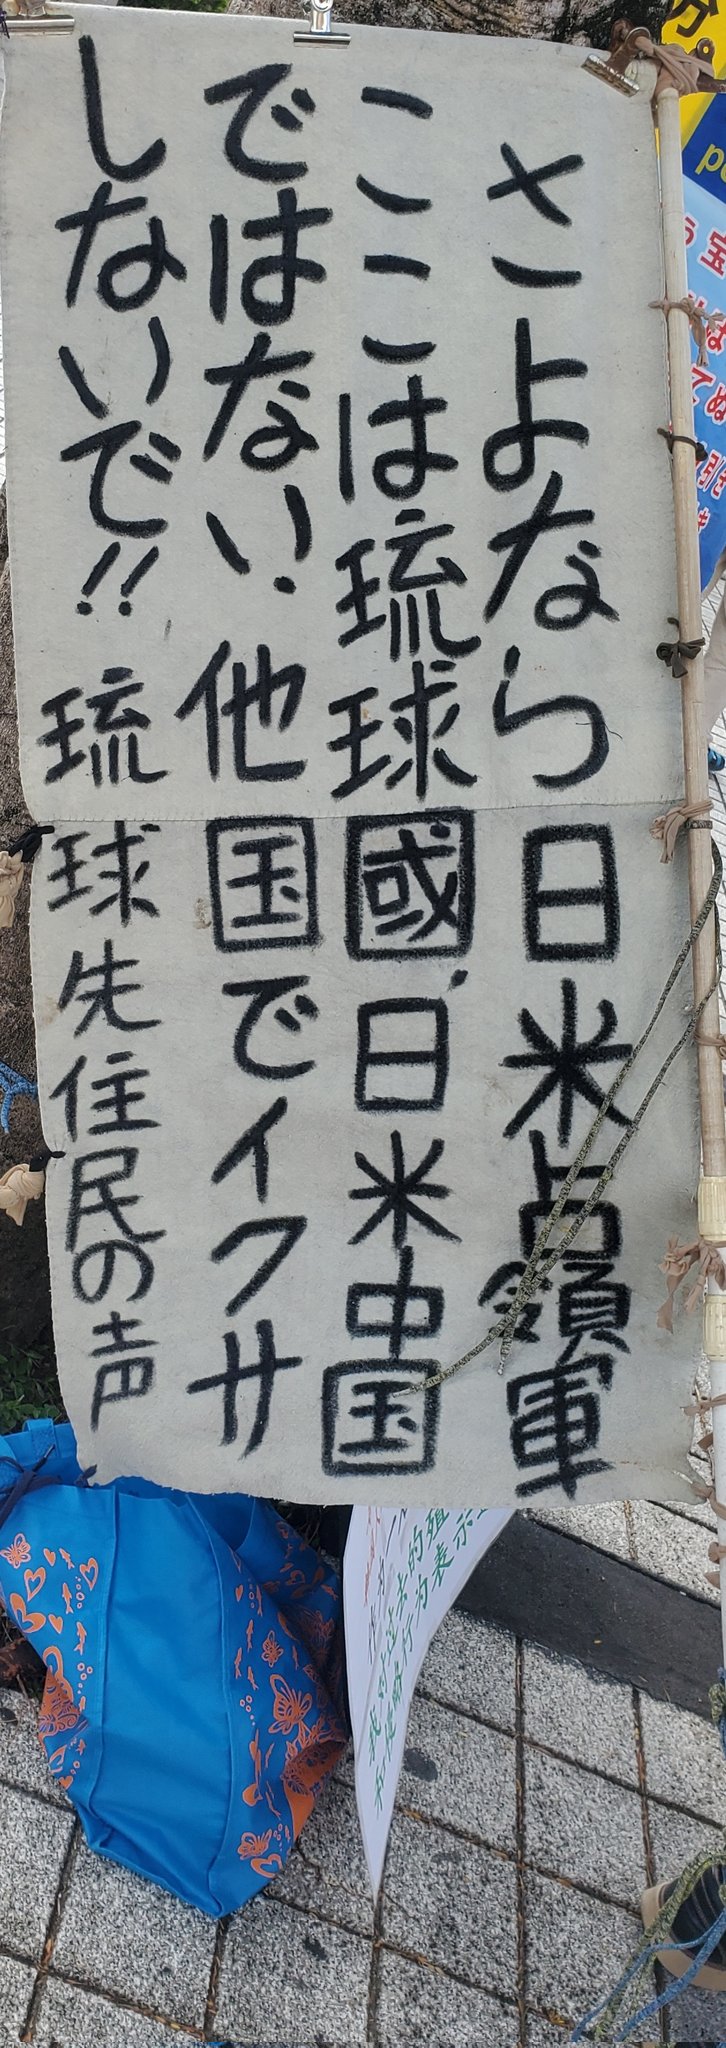 さよなら日米占領軍
ここは琉球國、日米中国
ではない!他国でイクサ
しないで!!琉球先住民の声